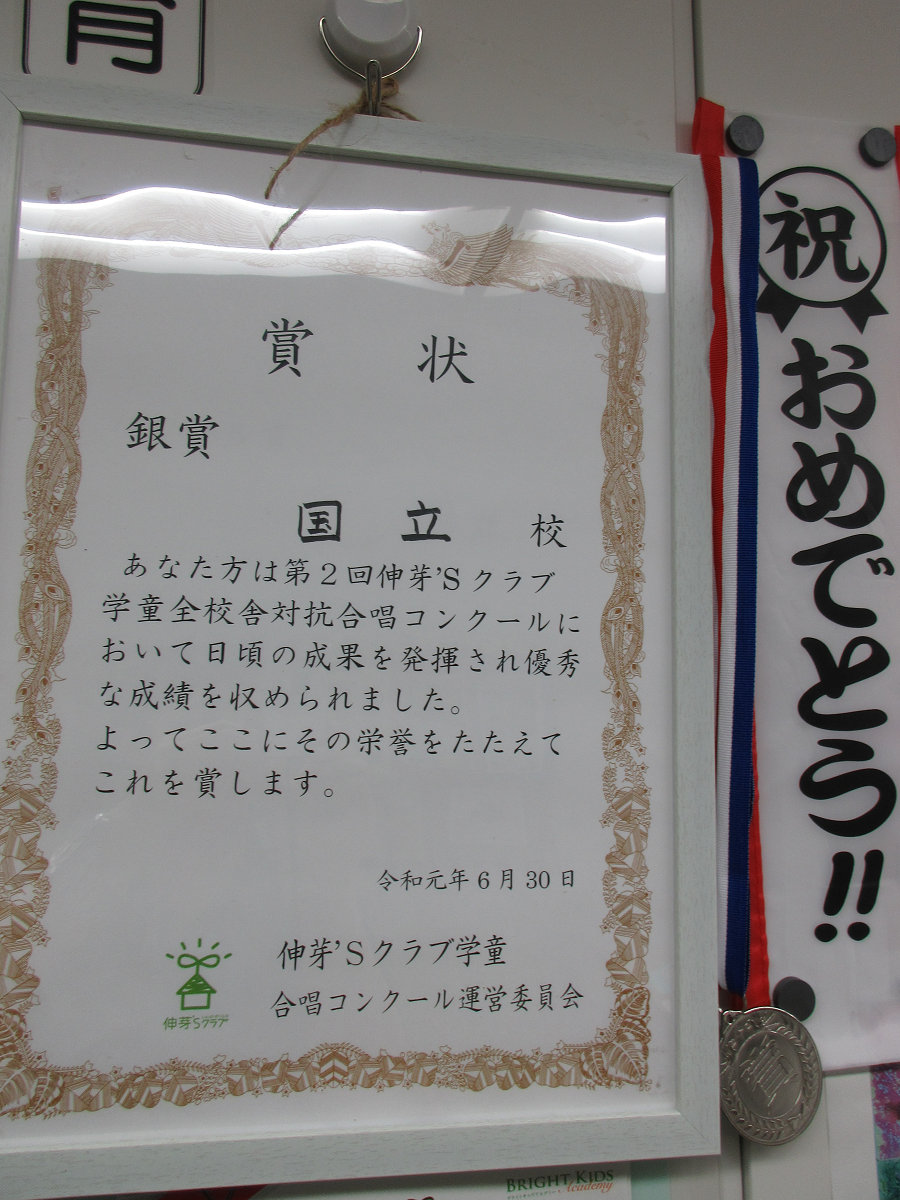 育
賞状
銀賞
国立 校
あなた方は第２回伸芽'Sクラブ
学童全校舎対抗合唱コンクールに
おいて日頃の成果を発揮され優秀
な成績を収められました。
よってここにその栄誉をたたえて
これを賞します。
令和元年６月30日
伸芽'Sクラブ学童
合唱コンクール運営委員会
伸芽'Sクラブ
祝
おめでとう!!
賞
BRIGHT KIDS
Academy